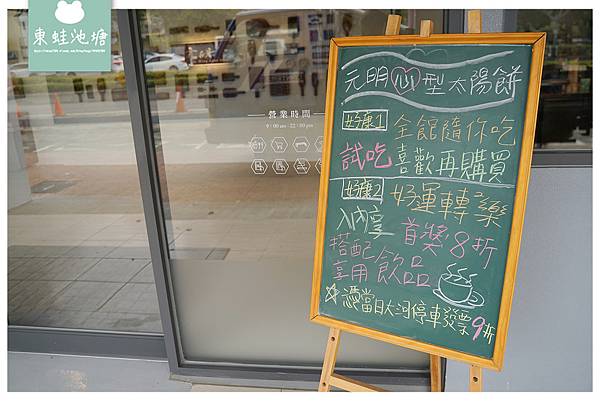 東蛙池塘
營業時間
9:00 am - 22:00 pm
元明心型太陽餅
好康1 全館隨你吃
試吃 喜歡再購買
好康2 好運轉轉樂
入內享 首獎8折
搭配
享用飲品
☆憑當日大河停車發票9折